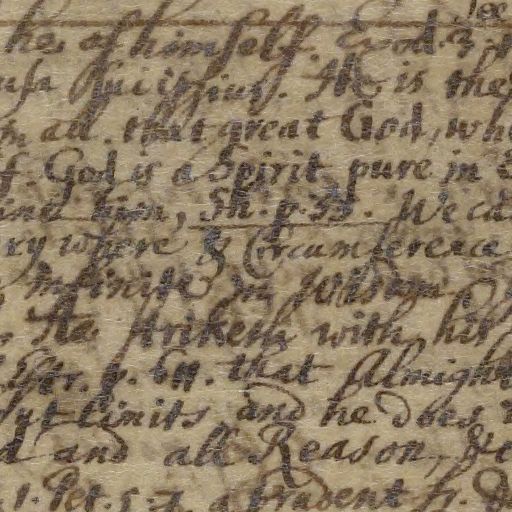 See
he of himself. Exod. 3.
He is the
all that great God, wh
f God is a Spirit pure in
him, Sh. p. 33. We ca
ry where & Circumference
Infinite in Wisdom,
He striketh with his
Str. p. that Almight
limits and he does
and all Reason, &c
1. Pet. 5. 7. a